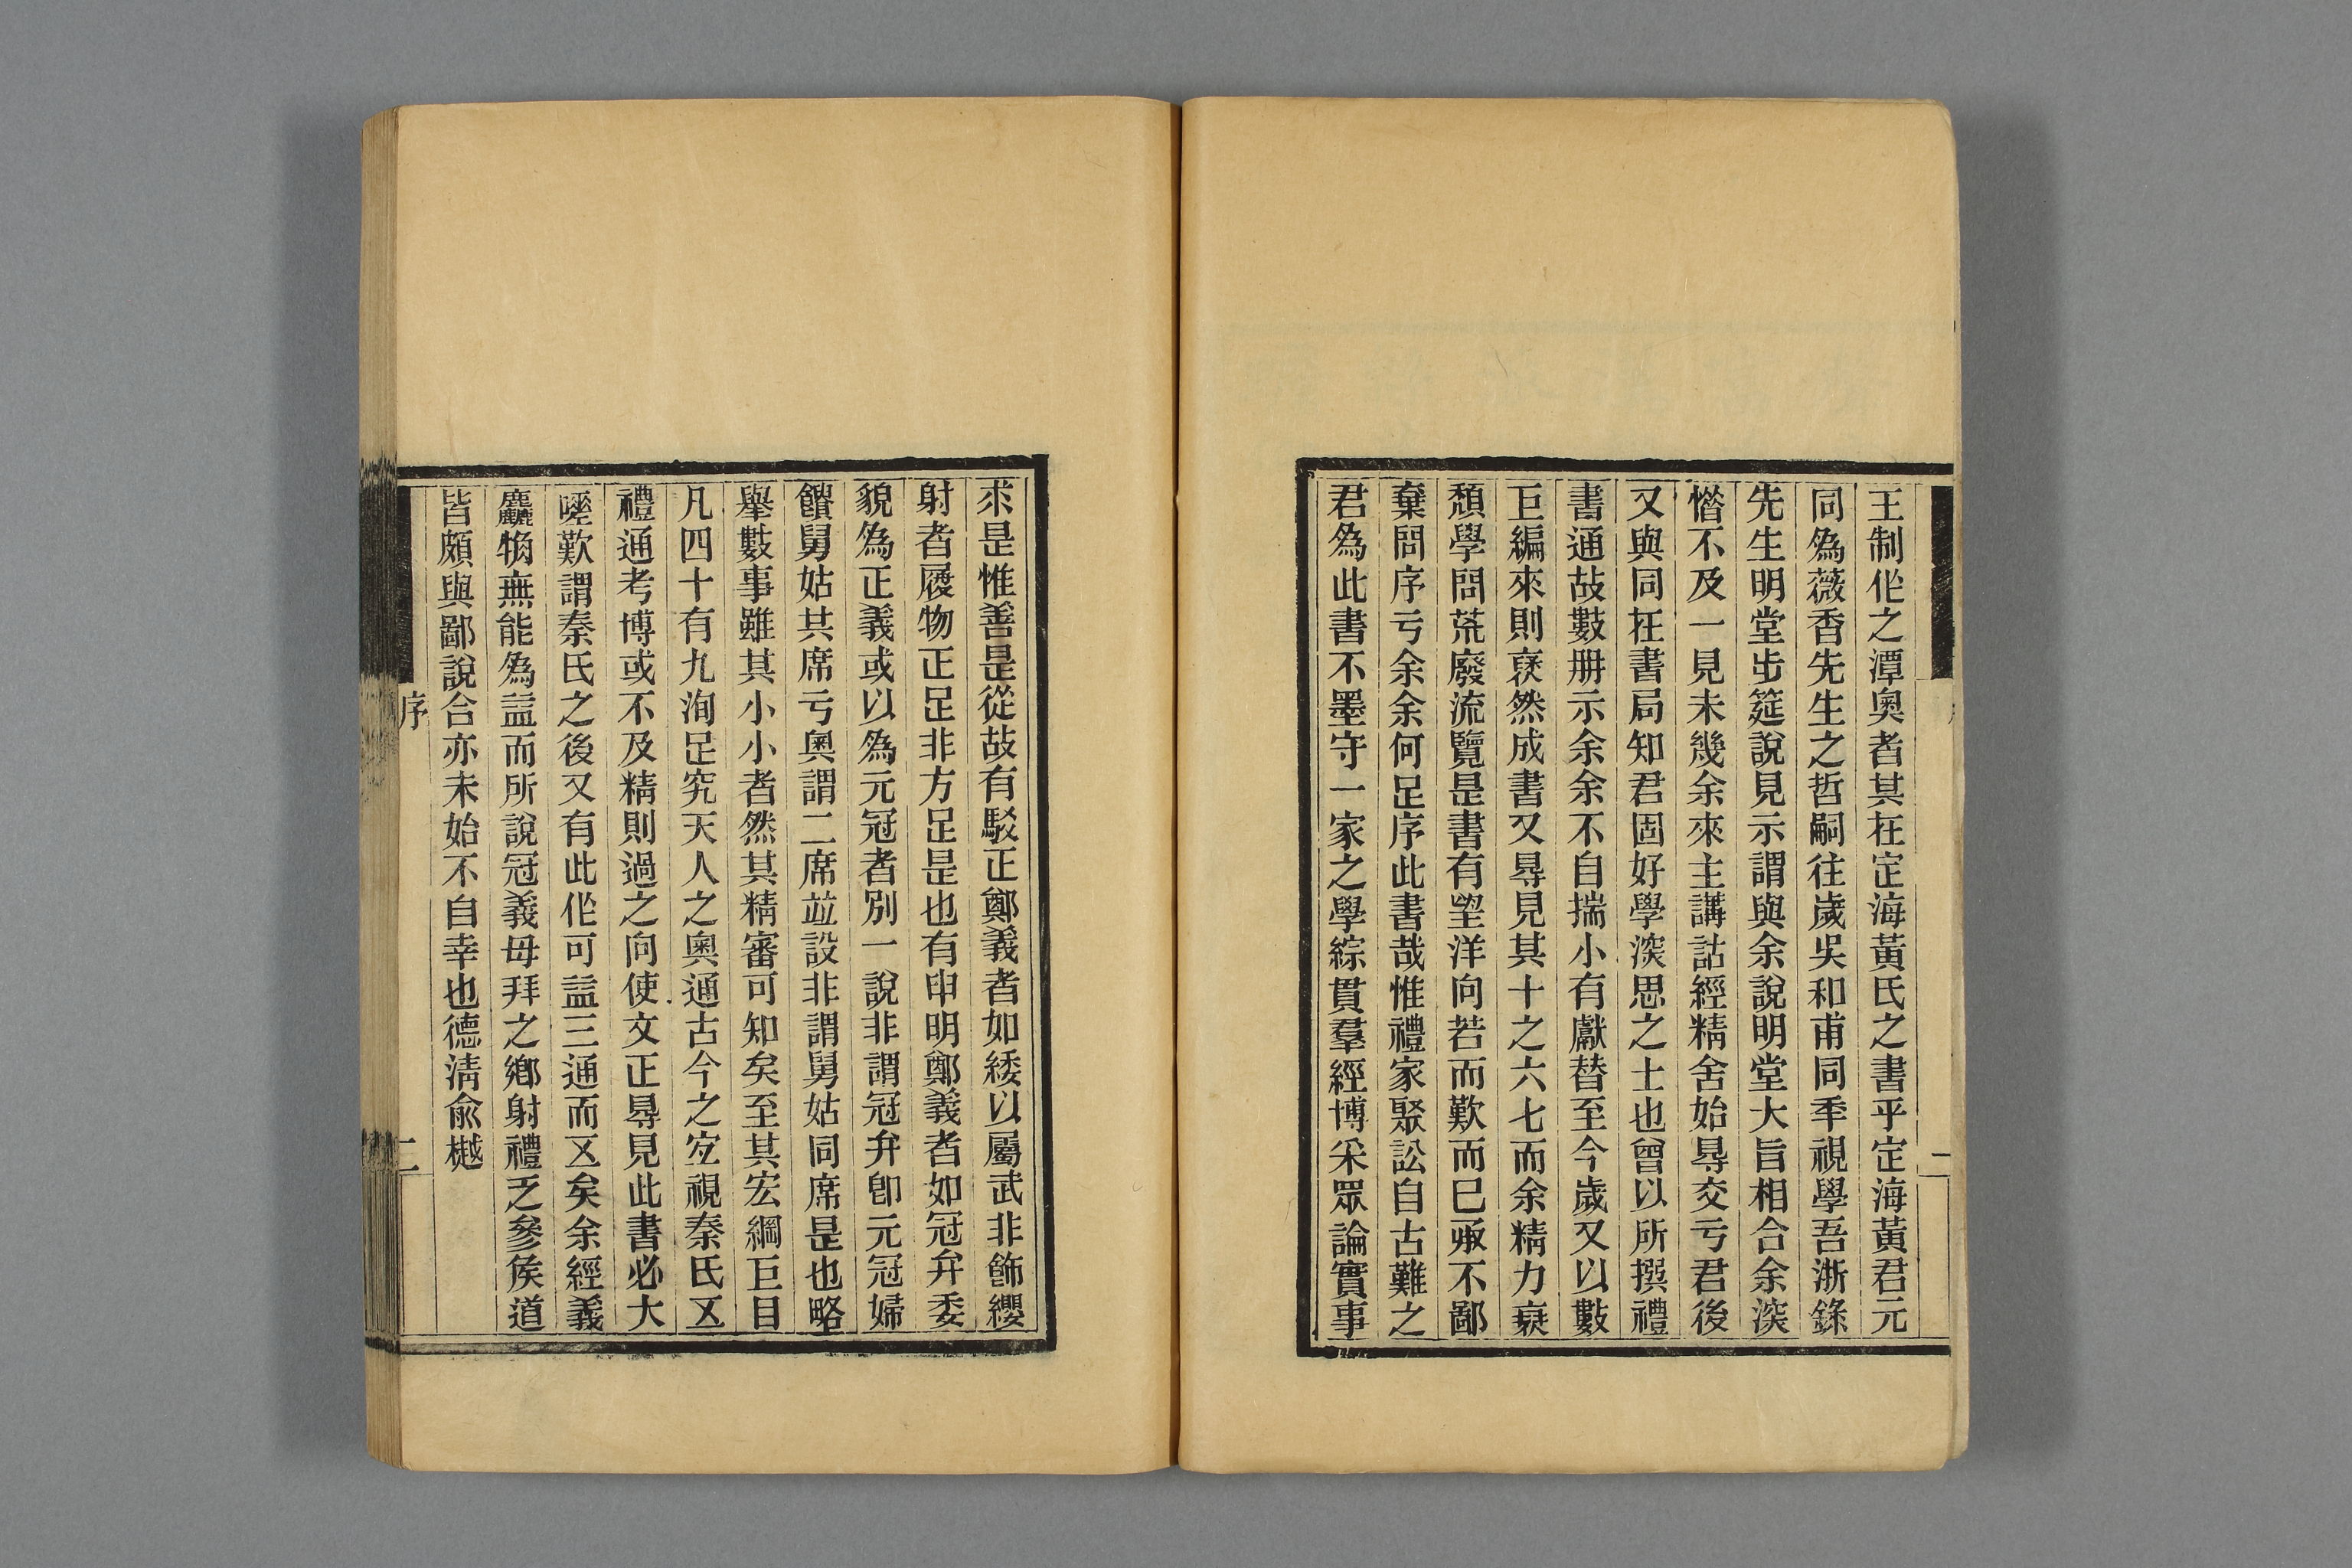 王制作之潭奧者其在定海黃氏之書乎定海黃君元
同為薇香先生之哲嗣往歲吳和甫同年視學吾浙錄
先生明堂步筵說見示謂與余說明堂大旨相合余深
憾不及一見未幾余來主講詁經精舍始㝵交亏君後
又與同在書局知君固好學深思之士也曾以所撰禮
書通故數冊示余余不自揣小有獻替至今歲又以數
巨編來則裒然成書又㝵見其十之六七而余精力衰
積學問荒廢流覽是書有朢洋向若而歎而已承不鄙
棄問序亏余余何足序此書哉惟禮家聚訟自古難之
君為此書不墨守一家之學綜貫羣經博采眾論實事
求是惟善是從故有駁正鄭義者如緌以屬武非飾纓
射者履物正足非方足是也有申明鄭義者如冠弁委
貌為正義或以為元冠者別一說非謂冠弁卽元冠婦
饋舅姑其席亏奧謂二席竝設非謂舅姑同席是也略
舉數事雖其小小者然其精審可知矣至其宏綱巨目
凡四十有九洵足究天人之奧通古今之宜視秦氏五
禮通考博或不及精則過之向使文正㝵見此書必大
嗟歎謂秦氏之後又有此作可益三通而五矣余經義
麤觕無能為益而所說冠義母拜之鄉射禮乏參侯道
皆頗與鄙說合亦未始不自幸也德清俞樾
序
二